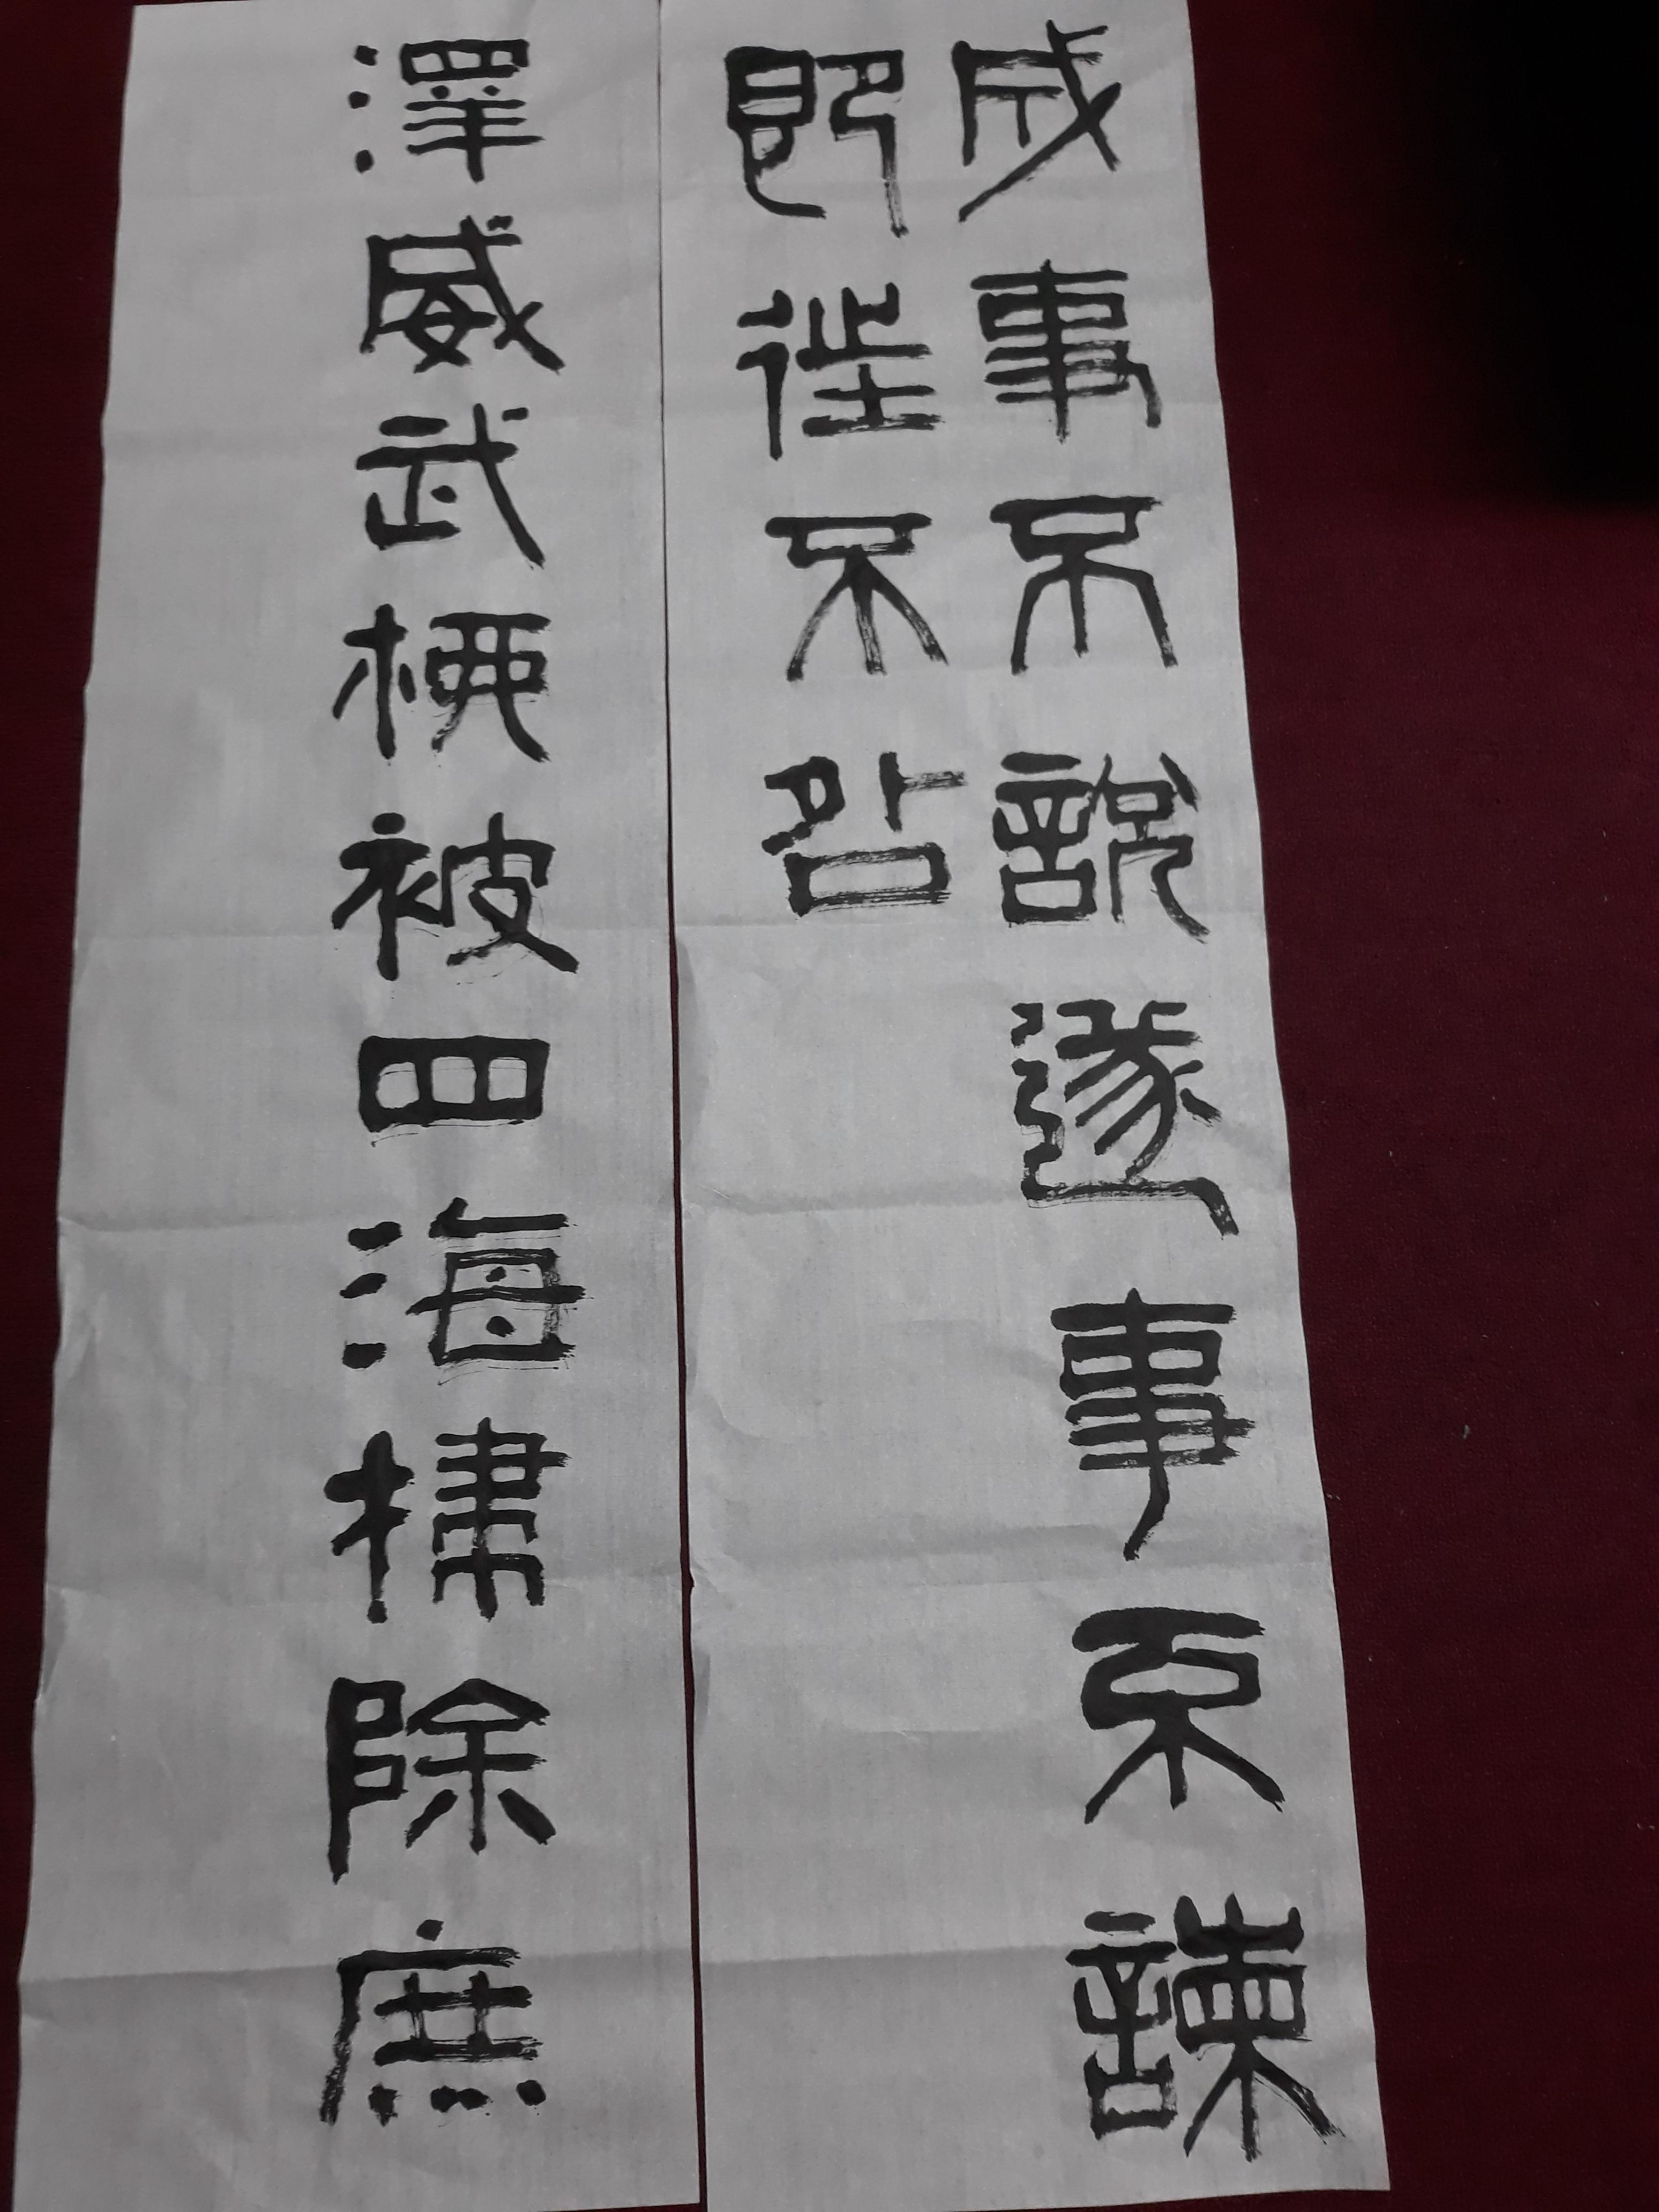 成事不說遂事不諫
即往不咎
澤威武被四海掃除庶